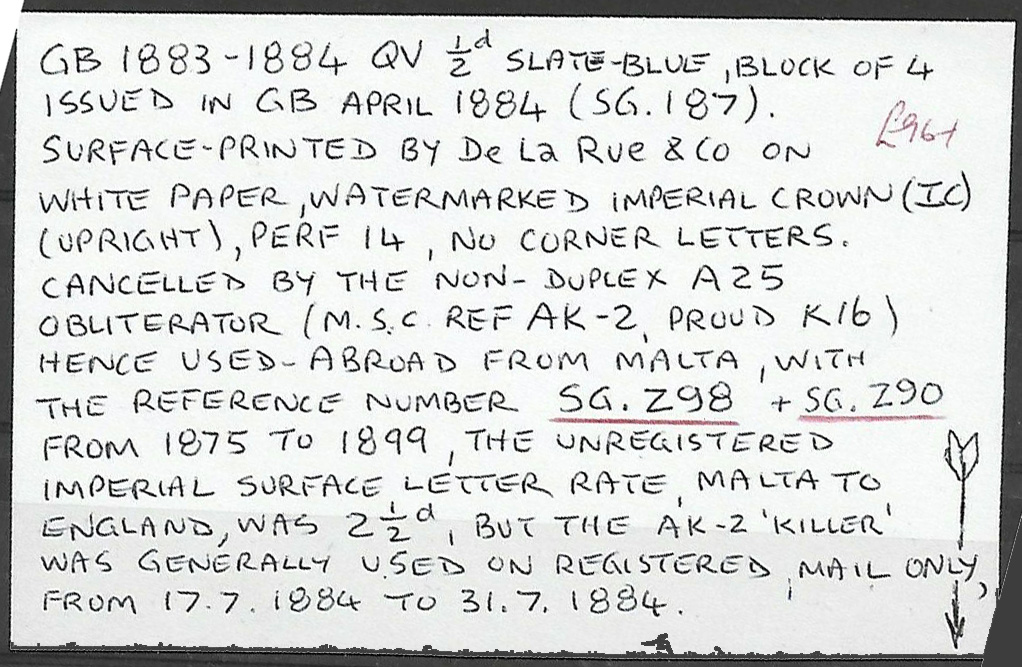 GB 1883-1884 QV ½d SLATE-BLUE, BLOCK OF 4
ISSUED IN GB APRIL 1884 (SG.187).
£96+
SURFACE-PRINTED BY De La Rue & Co ON
WHITE PAPER, WATERMARKED IMPERIAL CROWN (IC)
(UPRIGHT), PERF 14, NO CORNER LETTERS.
CANCELLED BY THE NON-DUPLEX A25
OBLITERATOR (M.S.C. REF AK-2, PROUD K16)
HENCE USED-ABROAD FROM MALTA, WITH
THE REFERENCE NUMBER SG. Z98 + SG. Z90
FROM 1875 TO 1899, THE UNREGISTERED
IMPERIAL SURFACE LETTER RATE, MALTA TO
ENGLAND, WAS 2½d, BUT THE AK-2 'KILLER'
WAS GENERALLY USED ON REGISTERED MAIL ONLY,
FROM 17.7.1884 TO 31.7.1884.